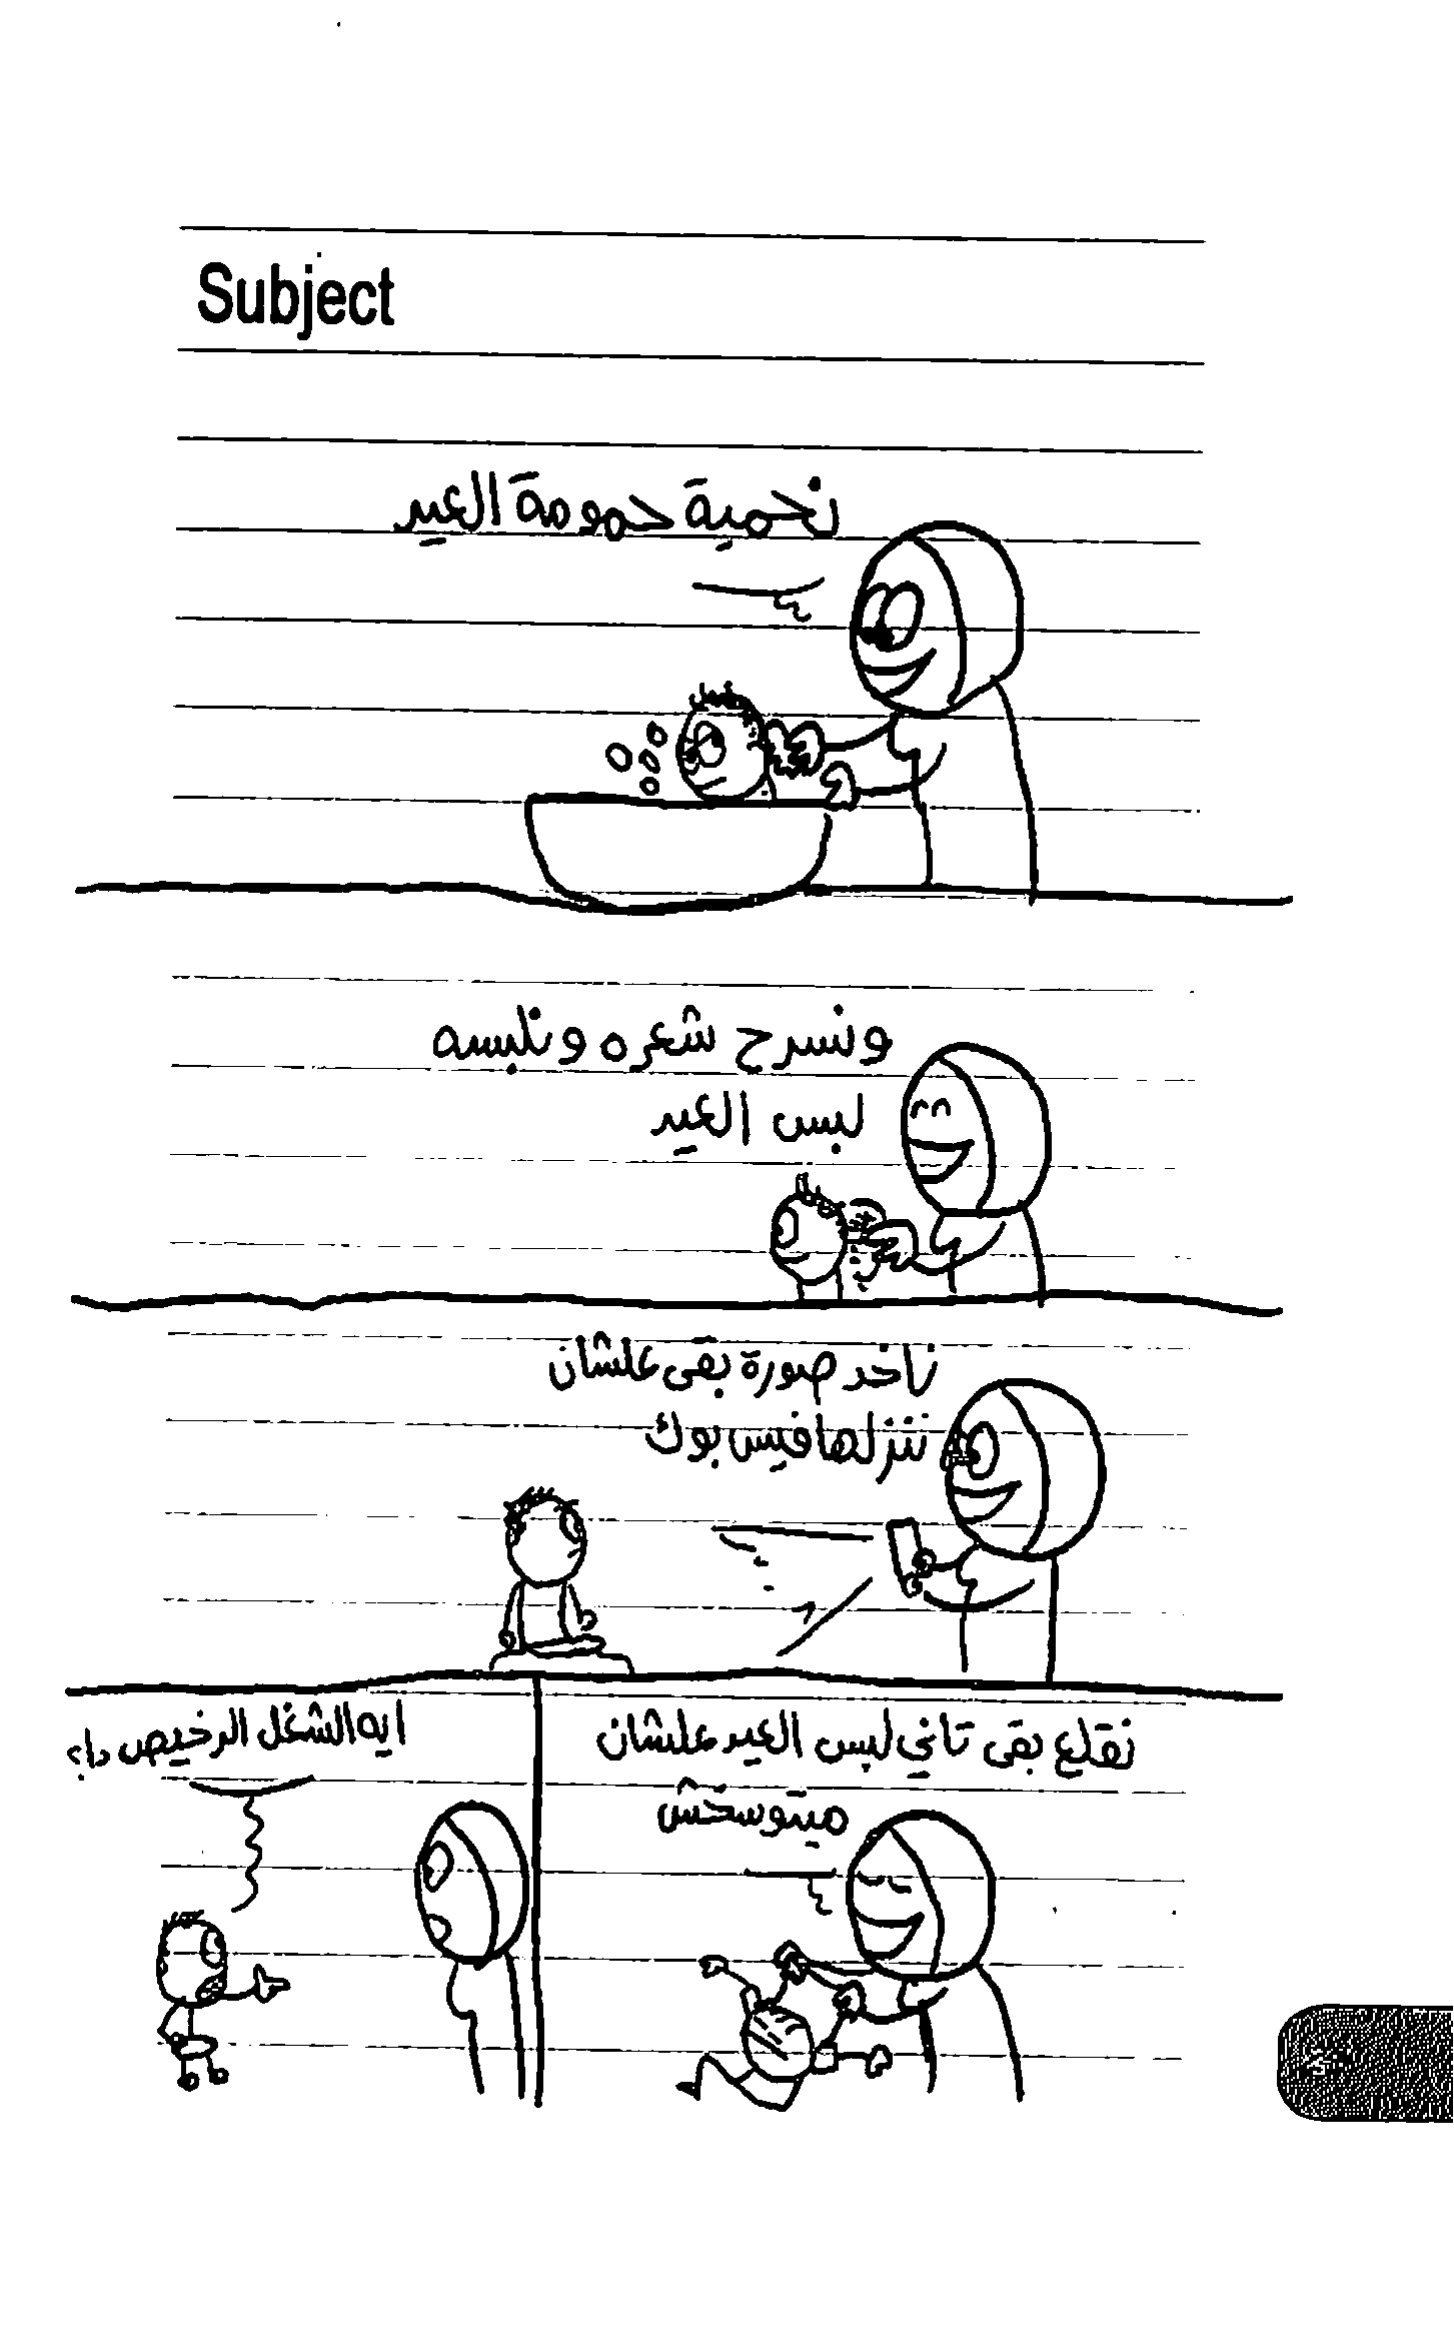 Subject
نحميه حمومة العيد
ونسرح شعره ونلبسه
لبس العيد
ناخد صورة بقى علشان
ننزلها فيس بوك
نقلع بقى تاني لبس العيد علشان
ميتوسخش
ايه الشغل الرخيص دا؟